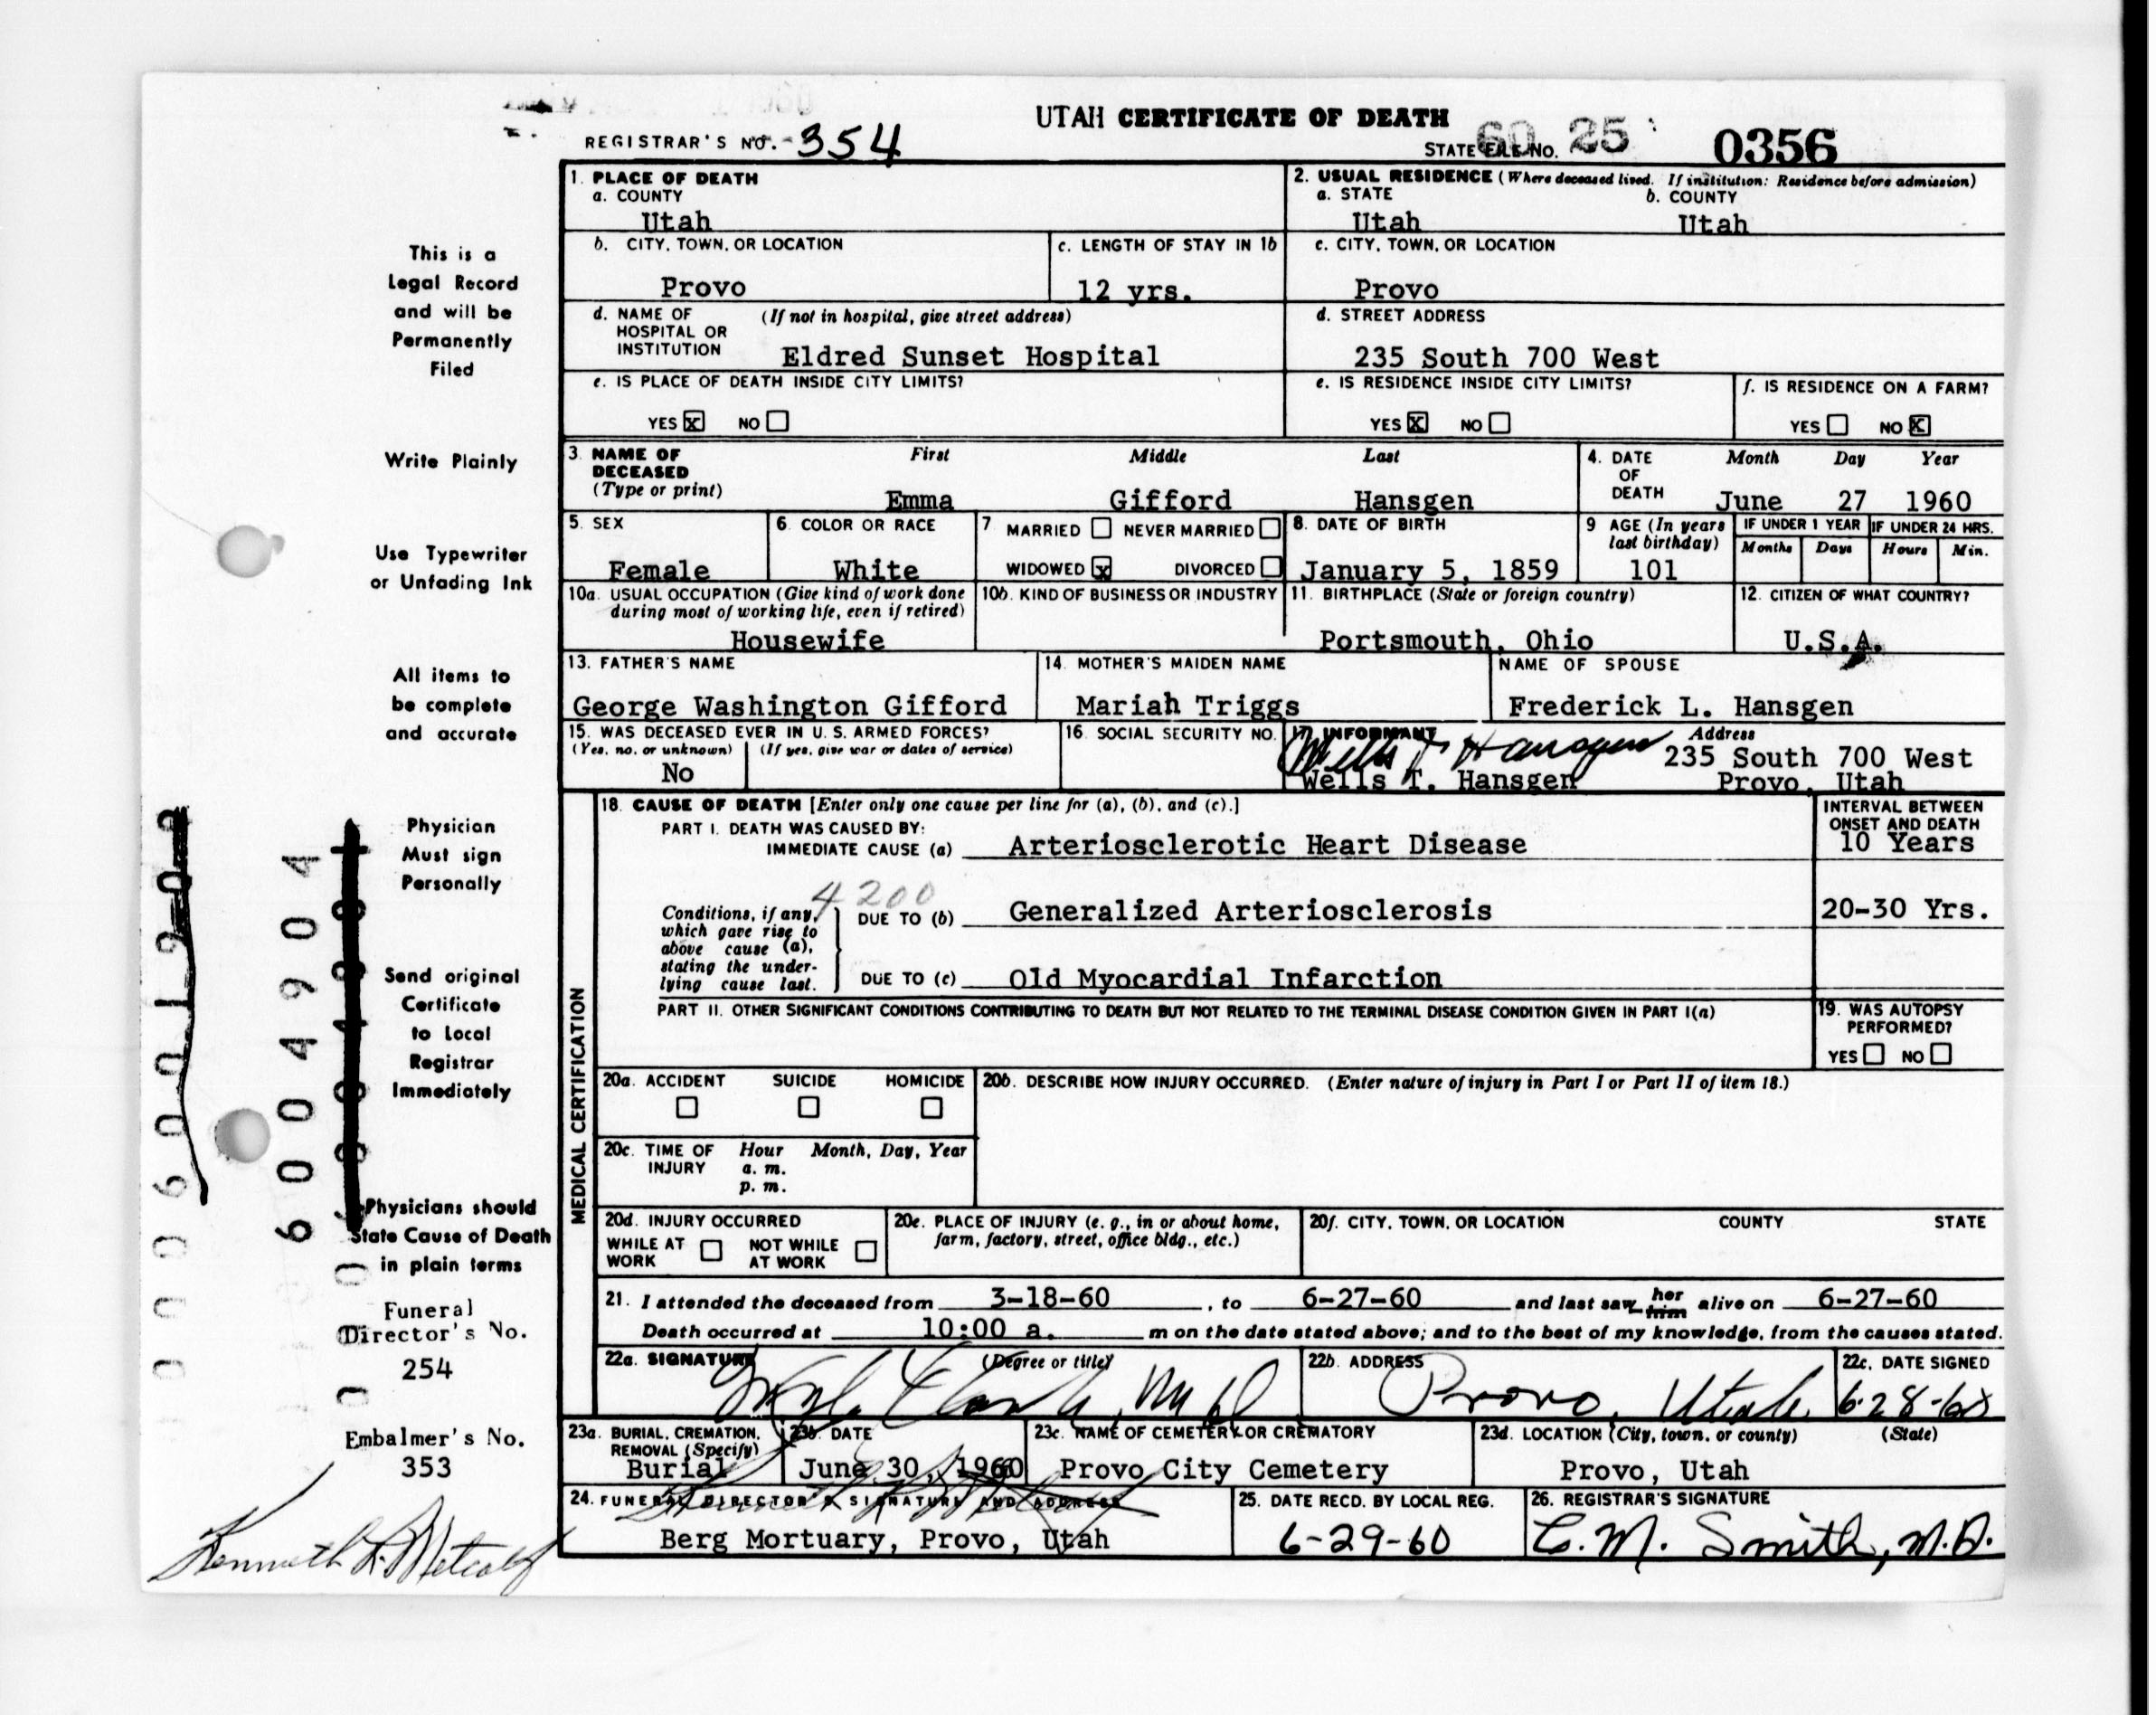 UTAH CERTIFICATE OF DEATH
REGISTRAR'S NO. 354
STATE FILE NO. 60 25 0356
1. PLACE OF DEATH
a. COUNTY
Utah
2. USUAL RESIDENCE (Where deceased lived. If institution: Residence before admission)
a. STATE b. COUNTY
Utah Utah
b. CITY, TOWN, OR LOCATION
Provo
c. LENGTH OF STAY IN 1b
12 yrs.
c. CITY, TOWN, OR LOCATION
Provo
d. NAME OF (If not in hospital, give street address)
HOSPITAL OR
INSTITUTION Eldred Sunset Hospital
d. STREET ADDRESS
235 South 700 West
e. IS PLACE OF DEATH INSIDE CITY LIMITS?
YES X NO
e. IS RESIDENCE INSIDE CITY LIMITS?
YES X NO
f. IS RESIDENCE ON A FARM?
YES NO X
3. NAME OF DECEASED (Type or print)
First Middle Last
Emma Gifford Hansgen
4. DATE OF DEATH
Month Day Year
June 27 1960
5. SEX
Female
6. COLOR OR RACE
White
7 MARRIED NEVER MARRIED
WIDOWED X DIVORCED
8. DATE OF BIRTH
January 5, 1859
9 AGE (In years last birthday)
101
IF UNDER 1 YEAR IF UNDER 24 HRS.
Months Days Hours Min.
10a. USUAL OCCUPATION (Give kind of work done
during most of working life, even if retired)
Housewife
10b. KIND OF BUSINESS OR INDUSTRY
11. BIRTHPLACE (State or foreign country)
Portsmouth, Ohio
12. CITIZEN OF WHAT COUNTRY?
U.S.A.
13. FATHER'S NAME
George Washington Gifford
14. MOTHER'S MAIDEN NAME
Mariah Triggs
NAME OF SPOUSE
Frederick L. Hansgen
15. WAS DECEASED EVER IN U. S. ARMED FORCES?
(Yes, no, or unknown) (If yes, give war or dates of service)
No
16. SOCIAL SECURITY NO.
17. INFORMANT Address
Wells T Hansgen 235 South 700 West
Wells T. Hansgen Provo, Utah
MEDICAL CERTIFICATION
18. CAUSE OF DEATH [Enter only one cause per line for (a), (b), and (c).]
INTERVAL BETWEEN
ONSET AND DEATH
PART I. DEATH WAS CAUSED BY:
IMMEDIATE CAUSE (a) Arteriosclerotic Heart Disease 10 Years
4200
Conditions, if any,
which gave rise to
above cause (a),
stating the under-
lying cause last.
DUE TO (b) Generalized Arteriosclerosis 20-30 Yrs.
DUE TO (c) Old Myocardial Infarction
PART II. OTHER SIGNIFICANT CONDITIONS CONTRIBUTING TO DEATH BUT NOT RELATED TO THE TERMINAL DISEASE CONDITION GIVEN IN PART I(a)
19. WAS AUTOPSY
PERFORMED?
YES NO
20a. ACCIDENT SUICIDE HOMICIDE
20b. DESCRIBE HOW INJURY OCCURRED. (Enter nature of injury in Part I or Part II of item 18.)
20c. TIME OF INJURY
Hour Month, Day, Year
a. m.
p. m.
20d. INJURY OCCURRED
WHILE AT WORK NOT WHILE AT WORK
20e. PLACE OF INJURY (e. g., in or about home,
farm, factory, street, office bldg., etc.)
20f. CITY, TOWN, OR LOCATION COUNTY STATE
21. I attended the deceased from 3-18-60, to 6-27-60 and last saw her him alive on 6-27-60
Death occurred at 10:00 a. m on the date stated above; and to the best of my knowledge, from the causes stated.
22a. SIGNATURE (Degree or title)
22b. ADDRESS
Provo, Utah
22c. DATE SIGNED
6-28-60
23a. BURIAL, CREMATION,
REMOVAL (Specify)
Burial
23b. DATE
June 30, 1960
23c. NAME OF CEMETERY OR CREMATORY
Provo City Cemetery
23d. LOCATION (City, town, or county) (State)
Provo, Utah
24. FUNERAL DIRECTOR'S SIGNATURE AND ADDRESS
Berg Mortuary, Provo, Utah
25. DATE RECD. BY LOCAL REG.
6-29-60
26. REGISTRAR'S SIGNATURE
C. M. Smith, M.D.
This is a
Legal Record
and will be
Permanently
Filed
Write Plainly
Use Typewriter
or Unfading Ink
All items to
be complete
and accurate
Physician
Must sign
Personally
Send original
Certificate
to Local
Registrar
Immediately
Physicians should
State Cause of Death
in plain terms
Funeral
Director's No.
254
Embalmer's No.
353
Kenneth L. Metcalf
6004904